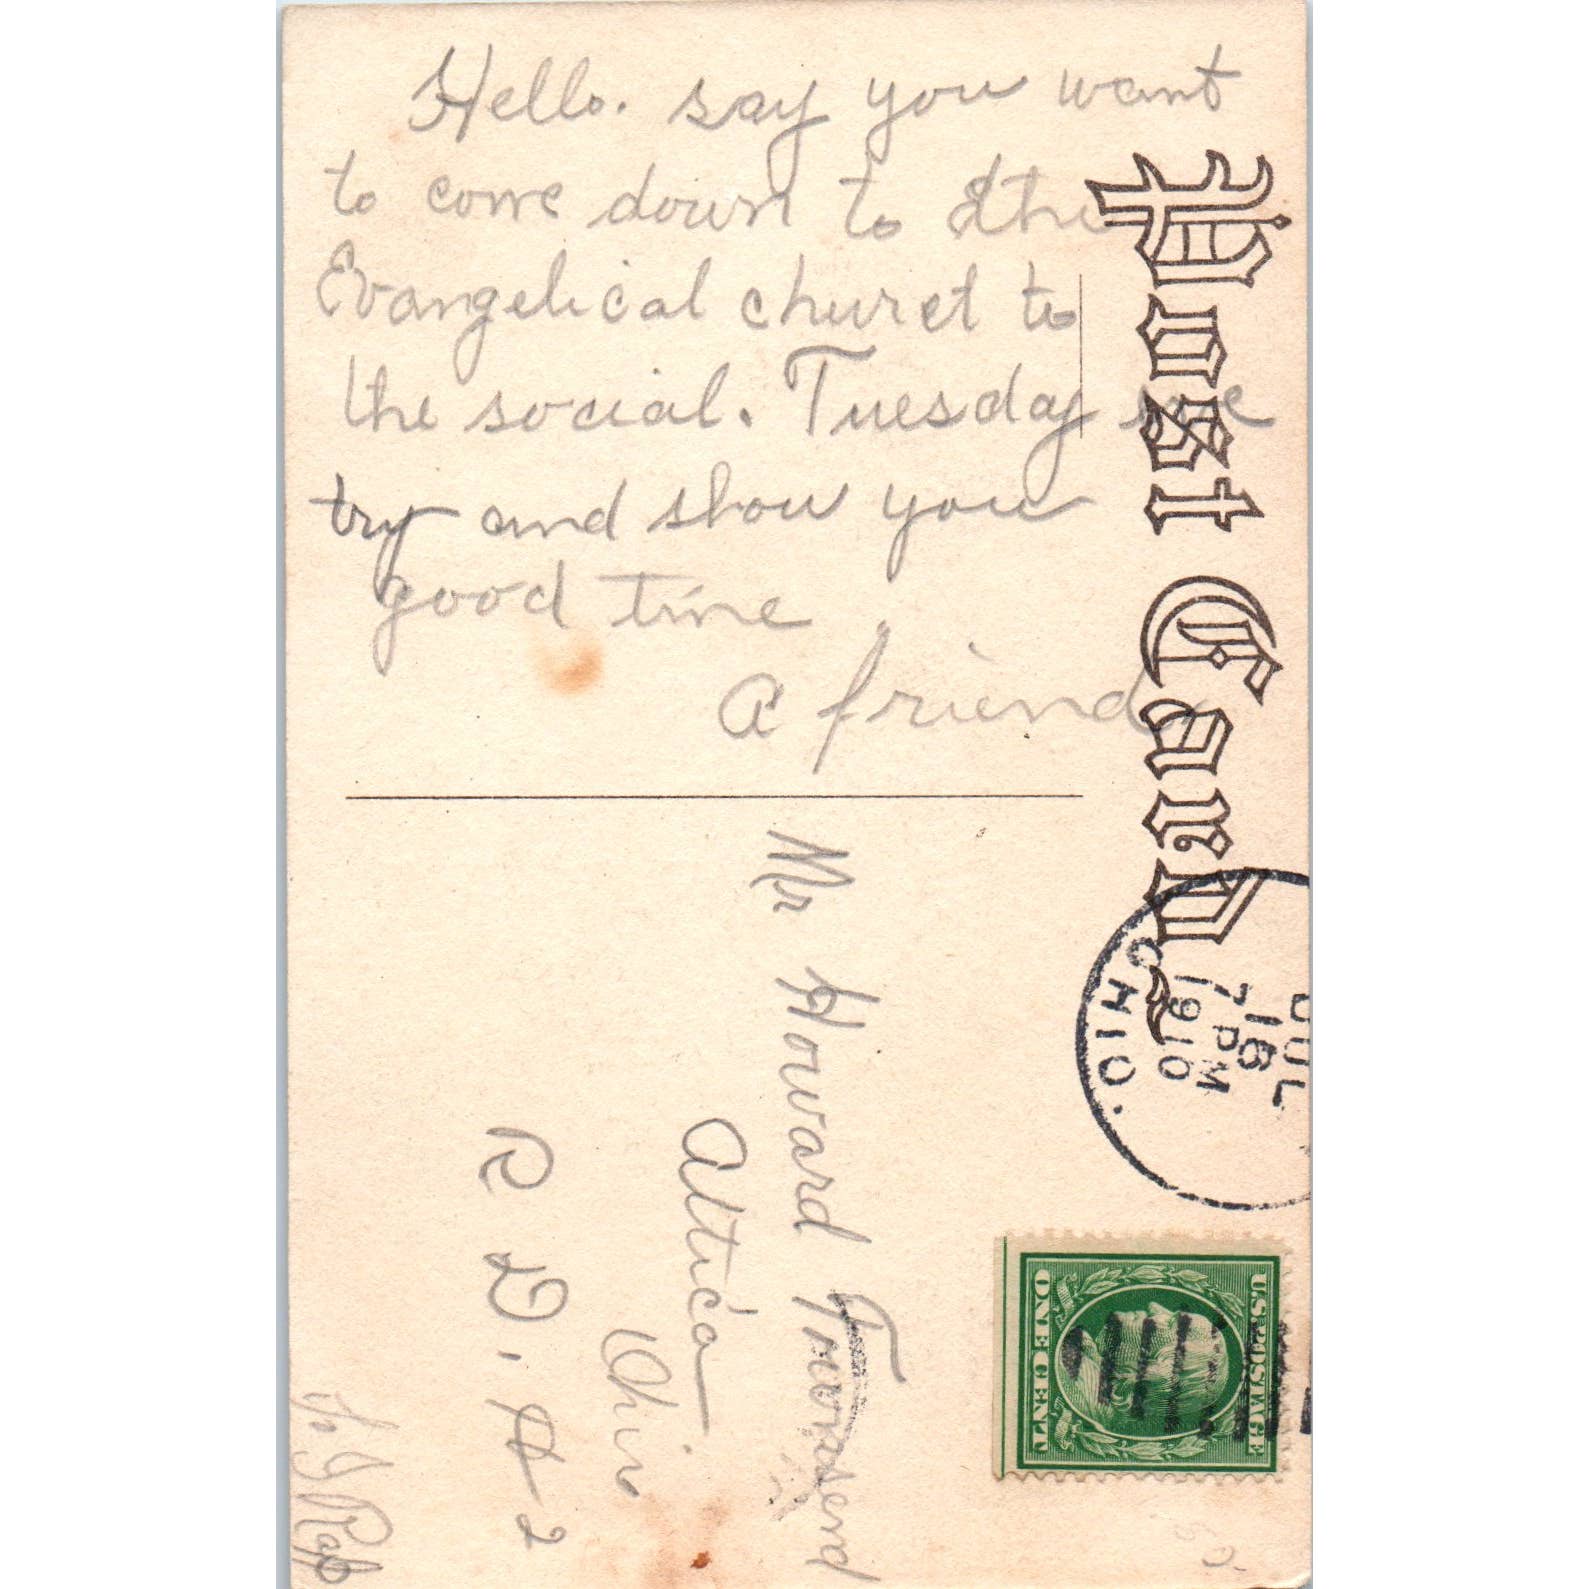 Hello. say you want
to come down to the
Evangelical church to
the social. Tuesday we
try and show you
good time
A friend.
Post Card
OHIO.
JUL
16
7 PM
1910
U.S. POSTAGE
ONE CENT
Mr Howard Townsend
Attica
Ohio
R D. # 2